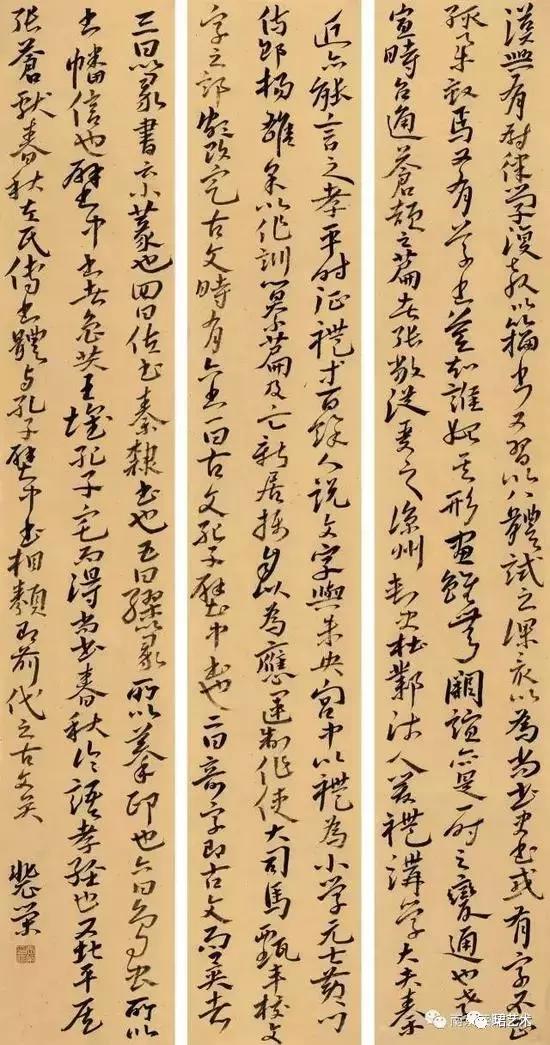 漢興有尉律學復教以籀書又習以八體試之課最以為尚書史書或有字不正
輒舉劾焉又有草書莫知誰始其形畫雖無厥誼亦是一時之變通也孝
宣時召通蒼頡之篇者張敞從受之涼州刺史杜鄴沛人爰禮講學大夫秦
近亦能言之孝平時徵禮等百餘人說文字與未央宮中以禮為小學元士黃門
侍郎楊雄采以作訓纂篇及亡新居攝自以為應運制作使大司馬甄豐校文
字之部頗改定古文時有六書一曰古文孔子壁中書也二曰奇字即古文而異者
三曰篆書云小篆也四曰佐書秦隸書也五曰繆篆所以摹印也六曰鳥虫所以
書幡信也壁中書者魯恭王壞孔子宅而得尚書春秋論語孝經也又北平侯
張蒼獻春秋左氏傳書體與孔子壁中書相類即前代之古文矣